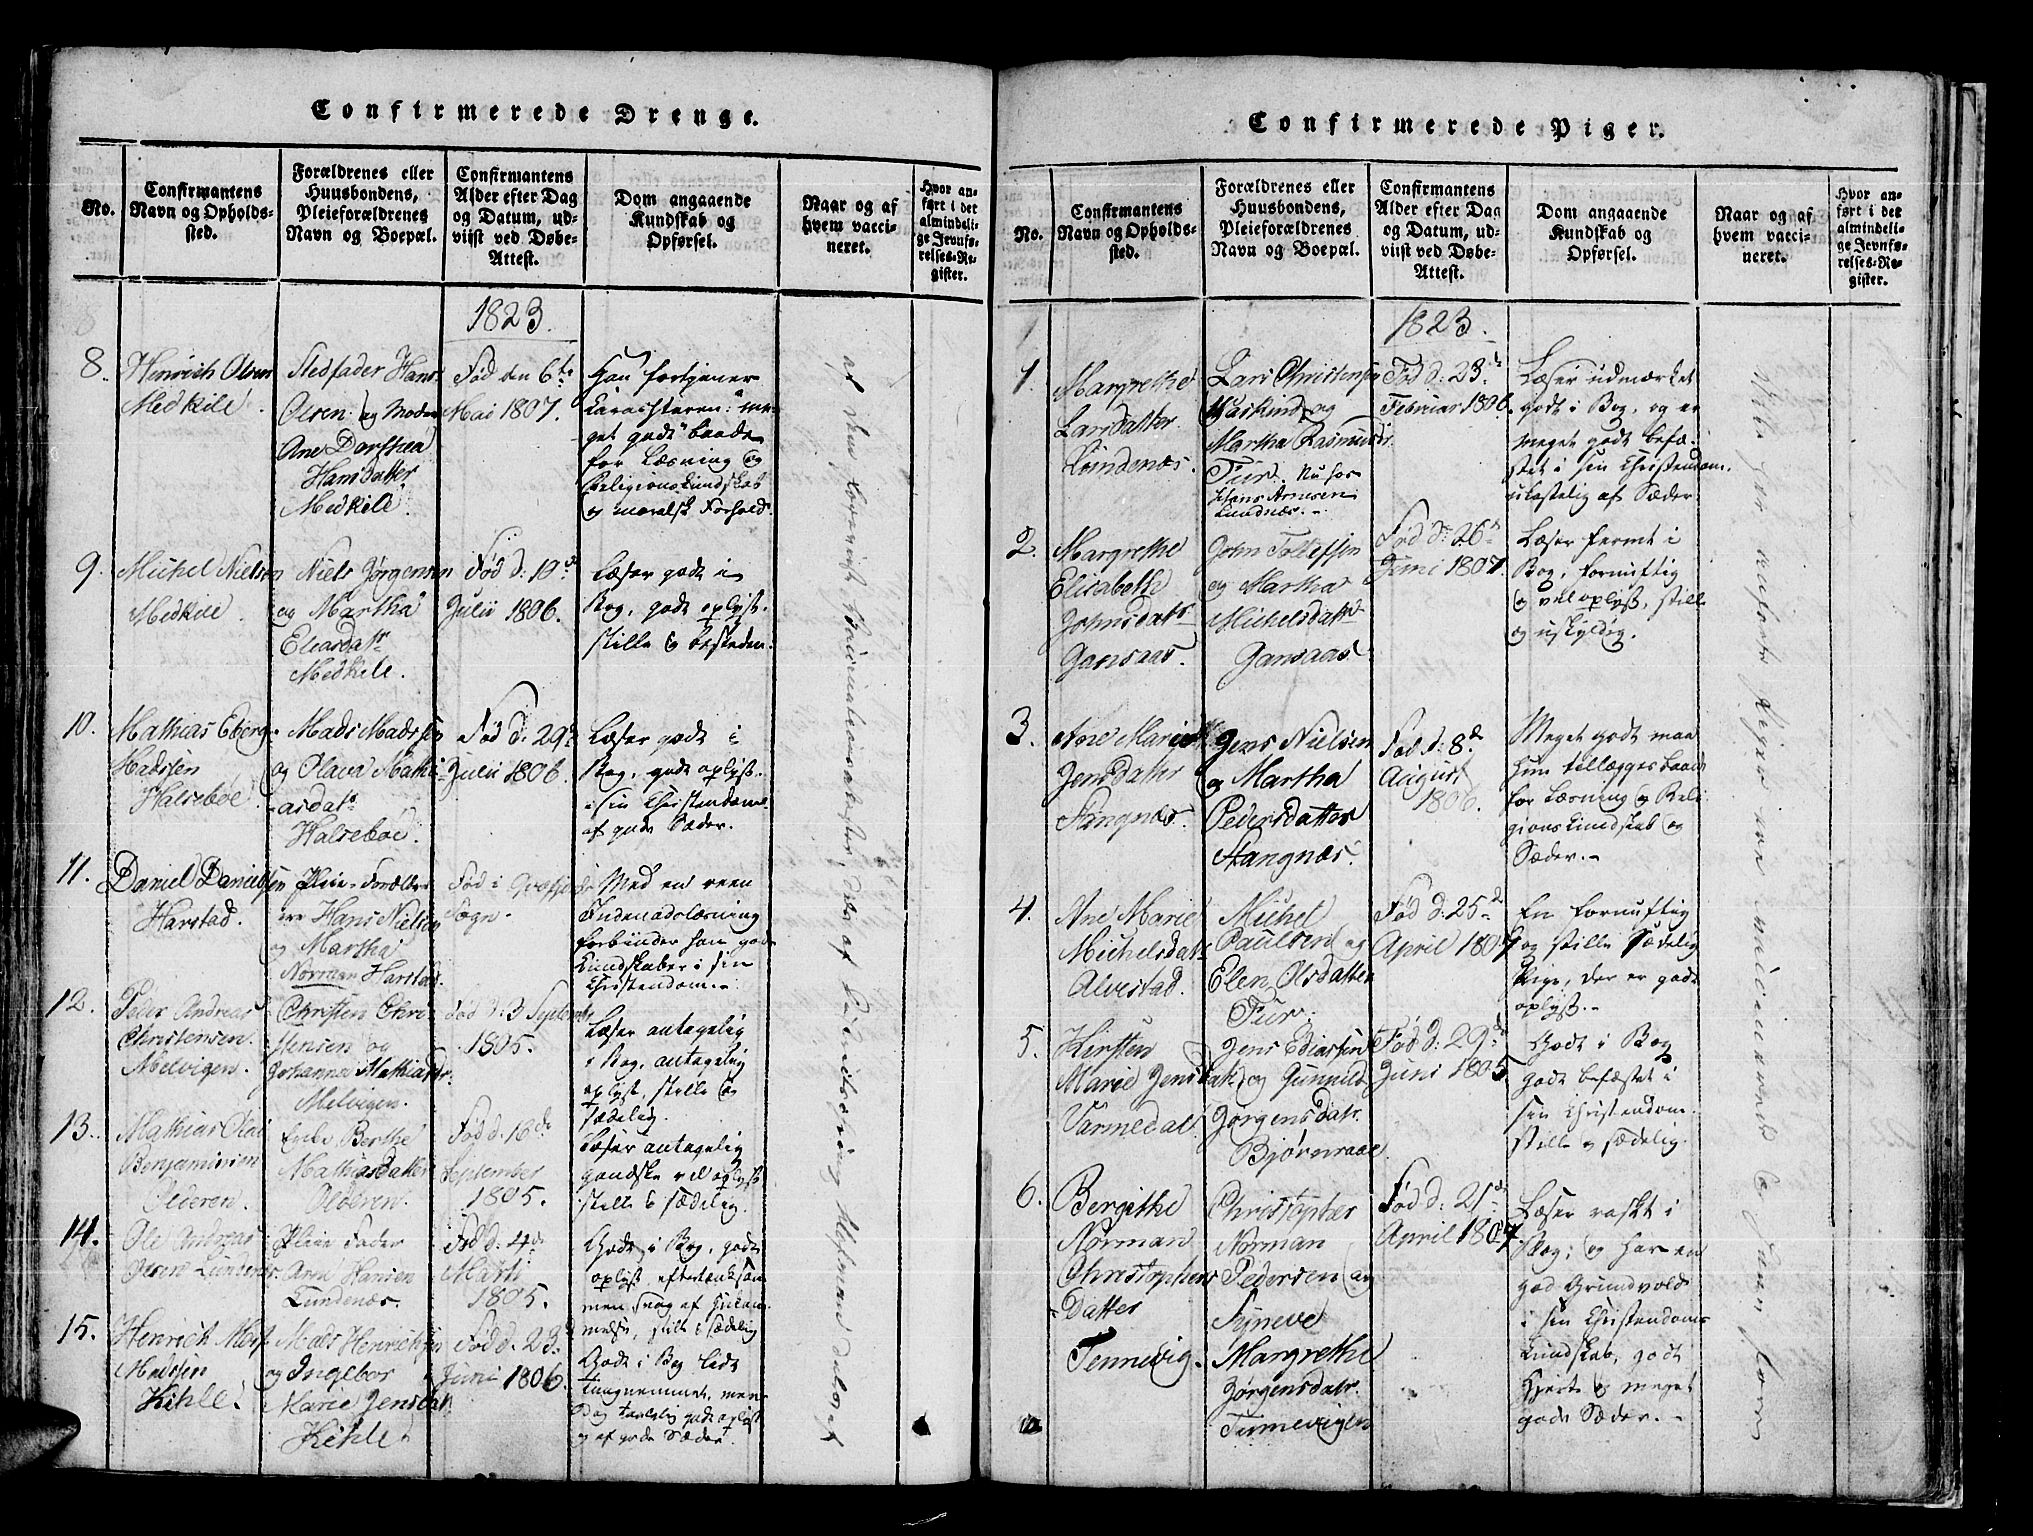 Confirmerede Drenge.
No.
Confirmantens
Navn og Opholds-
sted.
Forældrenes eller
Huusbondens,
Pleieforældrenes
Navn og Boepæl.
Confirmantens
Alder efter Dag
og Datum, ud-
viist ved Døbe-
Attest.
Dom angaaende
Kundskab og
Opførsel.
Naar og af
hvem vacci-
neret.
Hvor an-
ført i det
almindeli-
ge Jevnfø-
relses-Re-
gister.
1823.
8.
Henrich Olsen
Medkile.
Stedfader Hans
Olsen og Moder
Ane Dorthea
Hansdatter
Medkile.
Fød den 6te
Mai 1807.
Han fortjener
Karakteren: "me-
get godt" baade
for Læsning og
Religionskundskab
og moralsk Forhold.
9.
Michel Nielsen
Medkile.
Niels Jørgensen
og Martha
Eliasdatr
Medkile.
Fød d. 10de
Julii 1806.
Læser godt i
Bog, godt oplyst.
stille og beskeden.
10.
Mathias Eberg
Madssen
Halsebøe.
Mads Madssen
og Olava Mathi-
asdatr
Halsebøe.
Fød d. 29de
Julii 1806.
Læser godt i
Bog, godt oplyst
i sin Christendom
af gode Sæder.
11.
Daniel Danielsen
Harstad.
Pleie-Foræld-
re Hans Nielsen
og Martha
Norman Harstad.
Fød i Qvæfjords
Sogn.
Med en reen
Indenadslæsning
forbinder han gode
Kundskaber i sin
Christendom.
12.
Peder Andreas
Christensen
Melvigen.
Christen Chri-
stensen og
Johanna Mathiasdr.
Melvigen.
Fød d. 3 September
1805.
Læser antagelig
i Bog, antagelig
oplyst, stille og
sædelig.
13.
Mathias Olai
Benjaminsen
Olderen.
Enke Berthe
Mathiasdatter
Olderen.
Fød d. 16de
September
1805.
Læser antagelig
gandske vel oplyst
stille & sædelig.
14.
Ole Andreas
Olsen Lundenæs
Pleie Fader
Arn Hansen
Lundenæs.
Fød d. 4de
Marti
1805.
Godt i Bog, godt
oplyst, eftertænksom
men svag af Hukom-
melse, stille & sædelig
15.
Henrich
Madssen
Kihle.
Mads Henrichsen
og Ingebor
Marie Jensdatr
Kihle.
Fød d. 23de
Juni 1806.
Godt i Bog lidt
tungnemmet, men
dog taalelig godt oplyst
og af gode Sæder.
Confirmerede Piger.
No.
Confirmantens
Navn og Opholds-
sted.
Forældrenes eller
Huusbondens,
Pleieforældrenes
Navn og Boepæl.
Confirmantens
Alder efter Dag
og Datum, ud-
viist ved Døbe-
Attest.
Dom angaaende
Kundskab og
Opførsel.
Naar og af
hvem vacci-
neret.
Hvor an-
ført i det
almindeli-
ge Jevnfø-
relses-Re-
gister.
1823.
1.
Margrethe
Larsdatter
Lundenæs.
Lars Christensen
og
Martha Rasmusdr.
Nu hos
Hans Arnesen
Lundnæs.
Fød d. 23de
Februar 1806.
Læser udmærket
godt i Bog, og er
meget godt befæ-
stet i sin Christendom.
ulastelig af Sæder.
2.
Margrethe
Elisabeth
Johnsdatr
Gansaas.
John Tollefsen
og Martha
Michelsdatr
Gansaas.
Fød d. 26de
Juni 1807.
Læser fermt i
Bog, fornuftig
og vel oplyst, stille
og uskyldig.
3.
Ane Marie
Jensdatter
Stangnæs.
Jens Nielsen
og Martha
Pedersdatter
Stangnæs.
Fød d. 8de
August
1806.
Meget godt maa
hun tillægges baade
for Læsning og Reli-
gionskundskab og
Sæder.
4.
Ane Marie
Michelsdatr
Alvestad.
Michel
Paulsen og
Elen Olsdatter
Fød d. 25de
April 1807
En fornuftig
og stille sædelig
Pige, der er godt
oplyst.
5.
Kirsten
Marie Jensdatr
Varmedal.
Jens Eliassen
og Gunnild
Jørgensdatr.
Bjørnraae.
Fød d. 29de
Juni 1805
Godt i Bog
godt befæstet i
sin Christendom
stille og sædelig.
6.
Bergithe
Norman
Christophers
Datter
Tennevig.
Christopher
Norman
Pedersen og
Syneve
Margrethe
Jørgensdatr.
Tennevigen
Fød d. 21de
April 1807.
Læser raskt i
Bog, og har en
god Grundvold
i sin Christendoms
Kundskab, godt
Hjerte og meget
gode Sæder.